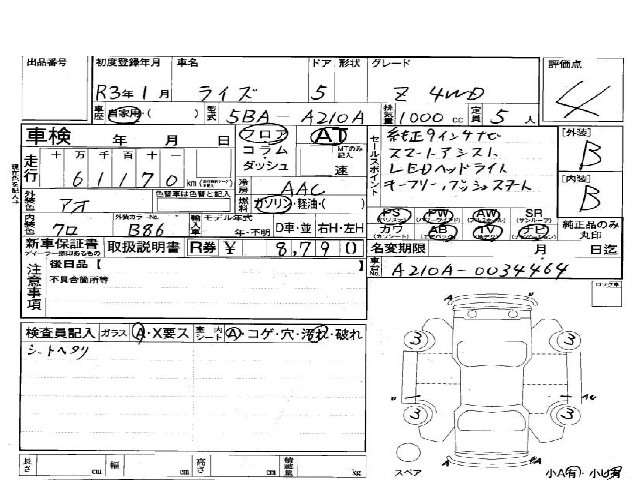 出品番号 初度登録年月 車名 ドア 形状 グレード 評価点
R3年1月 ライズ 5 Z 4WD 4
車歴 自家用・( ) 型式 5BA-A210A 排気量 1000cc 定員 5人
車検 年 月 日 フロア AT セールスポイント 純正9インチナビ [外装]
走行 十万千百十一 コラム MTのみ記入 スマートアシスト B
61170 km ダッシュ 速 LEDヘッドライト [内装]
外装色 色替車は色替と記入 冷房 AAC キーフリー,プッシュスタート B
アオ 燃料 ガソリン・軽油・( )
内装色 外装カラーNo. 輸入車 モデル年式 PS PW AW SR 純正品のみ丸印
クロ B86 年・不明 D車・並 右H・左H カワ AB TV
新車保証書 取扱説明書 R券 ¥ 8,790 名変期限 月 日迄
注意事項 後日品[ ] 車台No. A210A-0034464
不具合箇所等
検査員記入 ガラス A・X要ス 室内シート A・コゲ・穴・汚れ・破れ
シートヘタリ
3 3
3 3
長さ cm 幅 cm 高さ cm 積載量 kg スペア 小A有・小U有